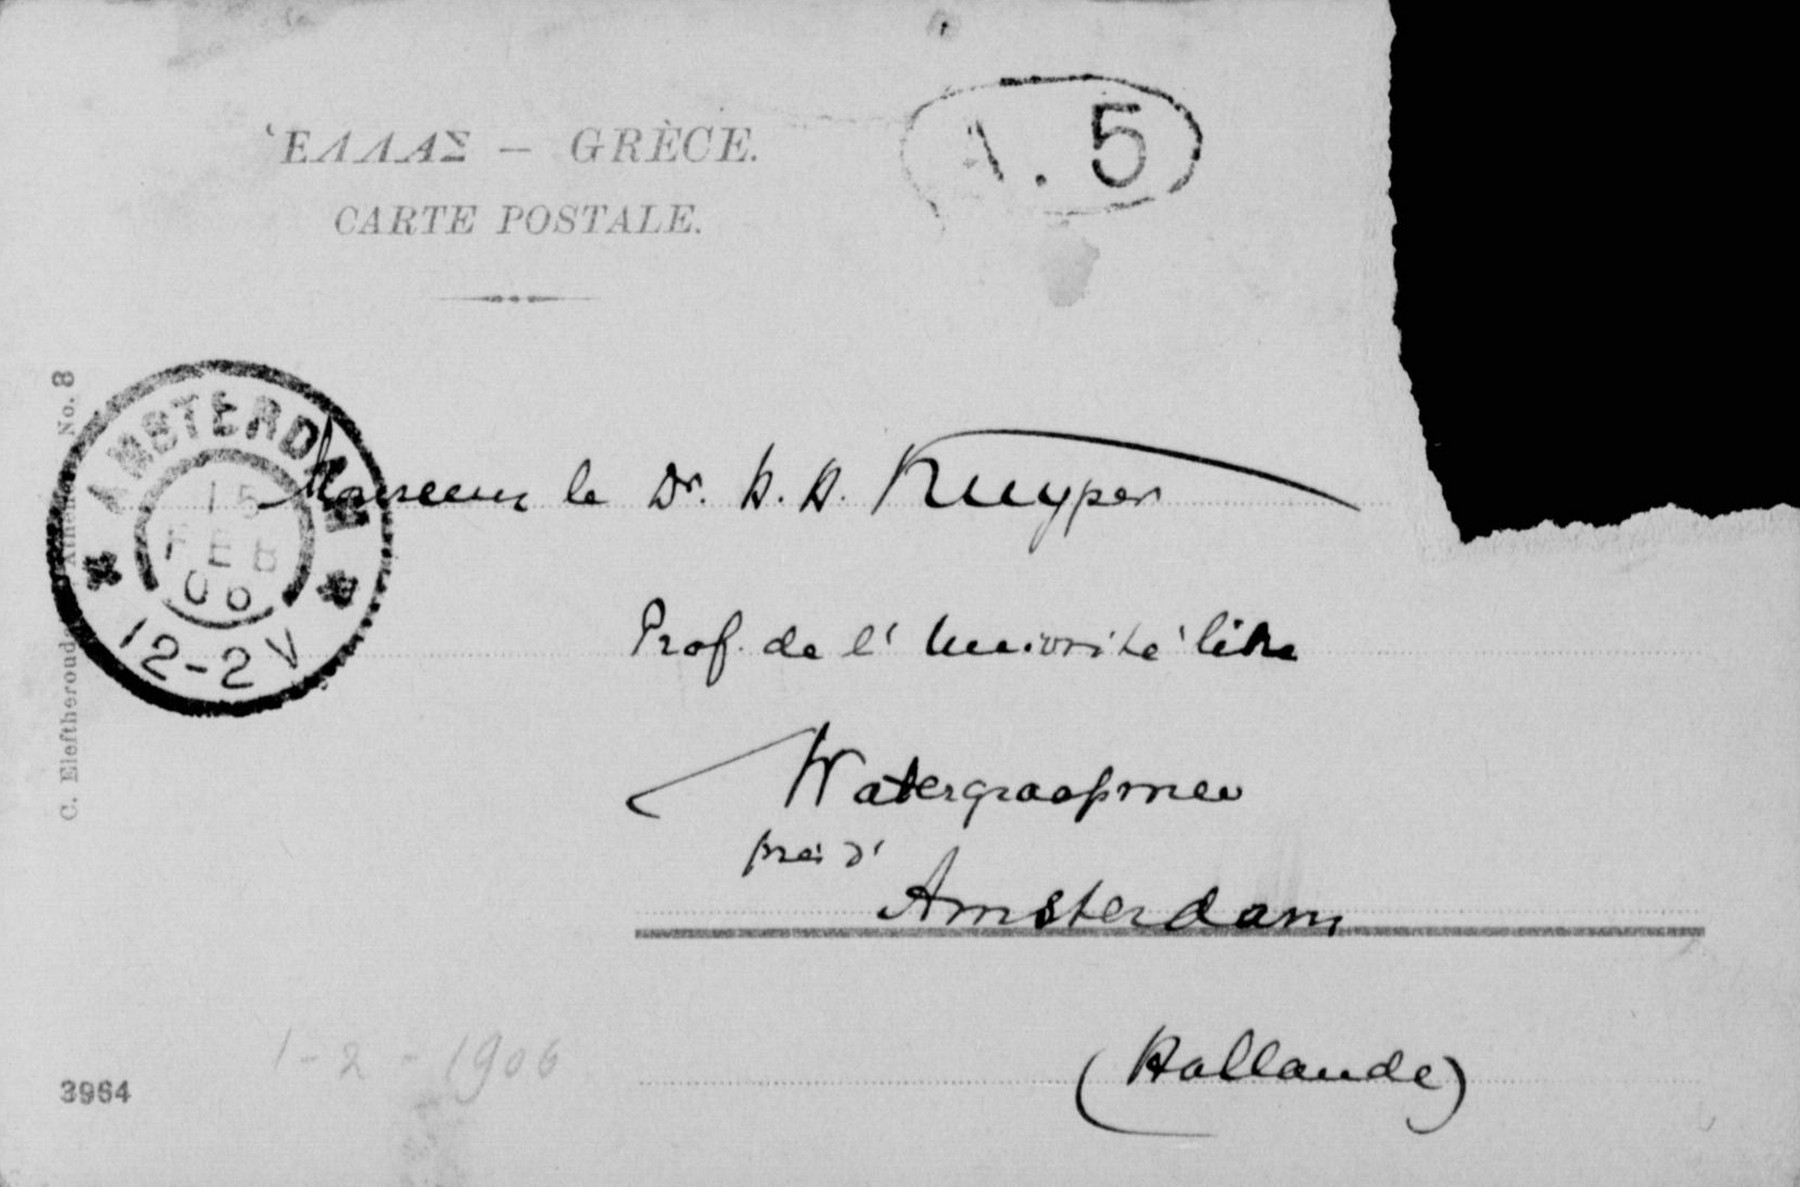 ἙΛΛΑΣ – GRÈCE.
CARTE POSTALE.
A. 5
AMSTERDAM
15
FEB
06
12-2 V
Monsieur le Dr. H. H. Kuyper
Prof. de l'Université libre
Watergraafsmeer
près d'
Amsterdam
(Hollande)
1-2-1906
3964
C. Eleftheroudakis, Athènes No. 8